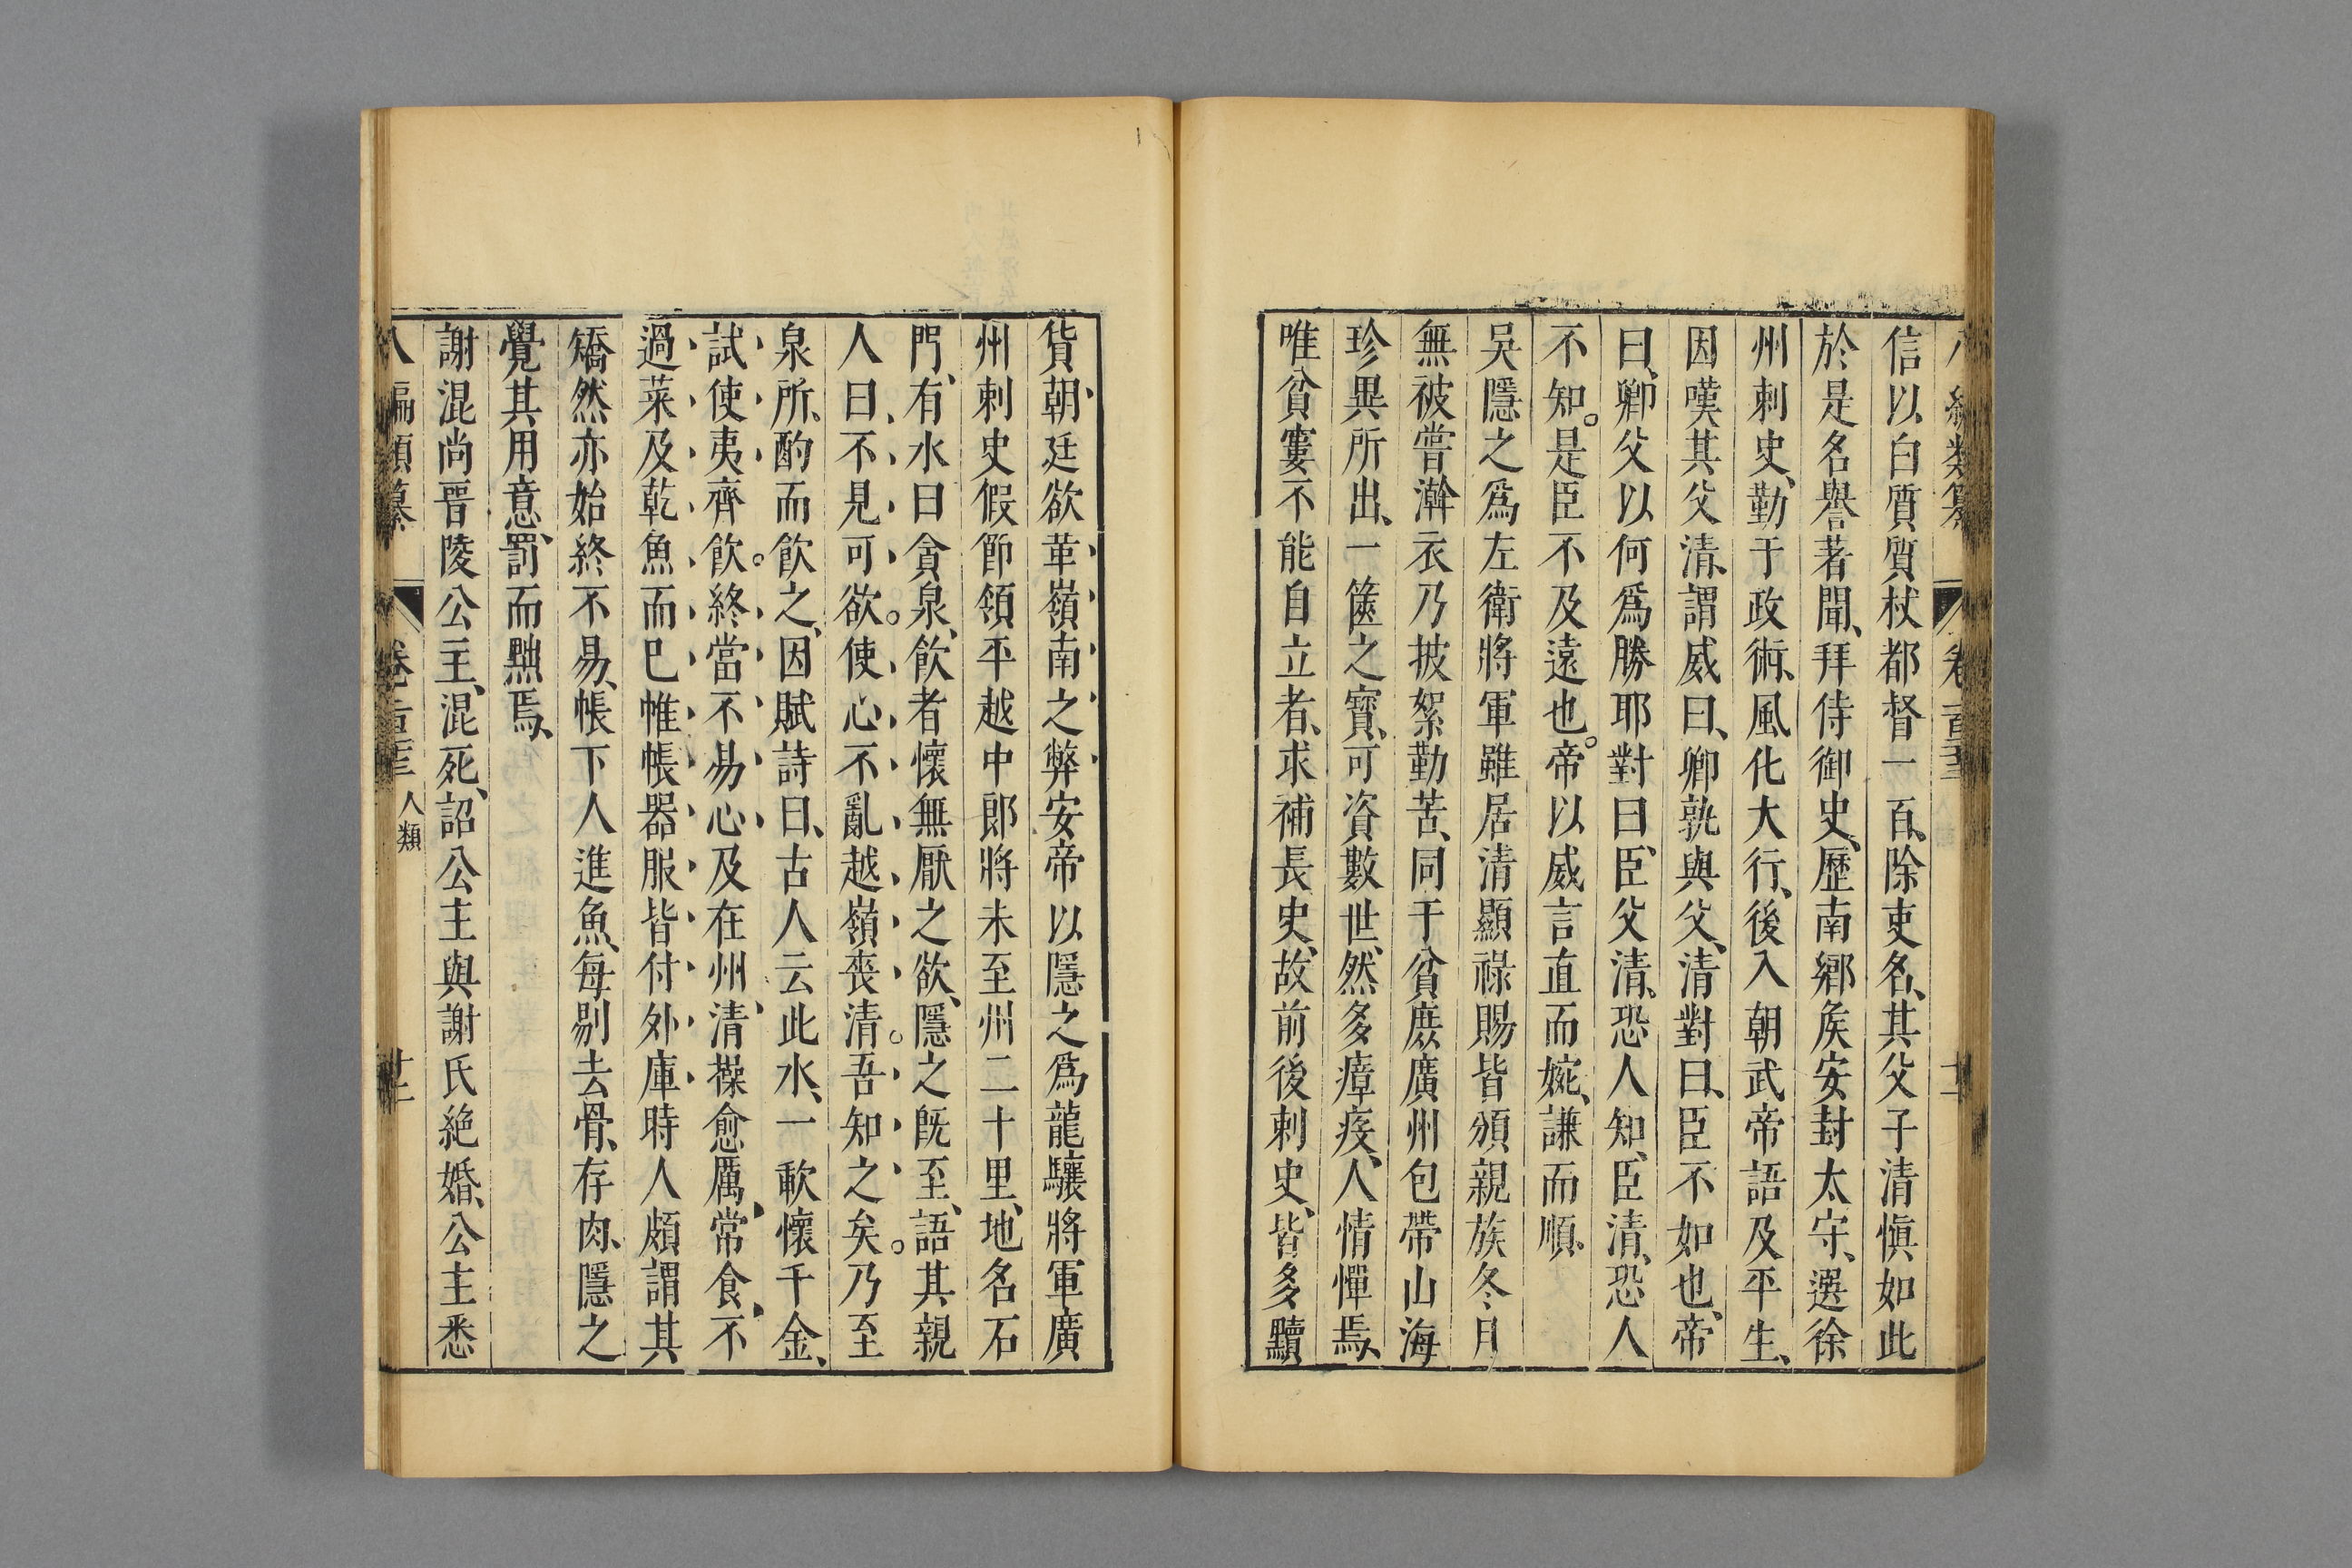 信以白質質杖都督一百、除吏名、其父子清愼如此
於是名譽著聞、拜侍御史、歷南鄉矦安封太守、選徐
州刺史、勤于政術、風化大行、後入朝武帝語及平生、
因嘆其父清、謂威曰、卿孰與父清、對曰、臣不如也、帝
曰、卿父以何爲勝耶對曰、臣父清、恐人知、臣清、恐人
不知。是臣不及遠也。帝以威言直而婉、謙而順、
吳隱之爲左衛將軍雖居清顯祿賜皆頒親族冬月
無被嘗澣衣乃披絮勤苦、同于貧庶廣州包帶山海
珍異所出、一篋之寶、可資數世、然多瘴疫、人情憚焉、
唯貧窶不能自立者、求補長史、故前後刺史、皆多黷
貨、朝廷欲革嶺南之弊安帝以隱之爲龍驤將軍廣
州刺史假節領平越中郎將未至州二十里、地名石
門、有水曰貪泉、飲者懷無厭之欲、隱之旣至、語其親
人曰、不見可欲。使心不亂越嶺喪清。吾知之矣。乃至
泉所、酌而飲之、因賦詩曰、古人云此水、一歃懷千金、
試使夷齊飲。終當不易心及在州、清操愈厲、常食、不
過菜及乾魚而巳帷帳器服皆付外庫時人頗謂其
矯然亦始終不易、帳下人進魚、每剔去骨、存肉、隱之
覺其用意、罰而黜焉、
謝混尚晉陵公主、混死、詔公主與謝氏絶婚、公主悉
人類